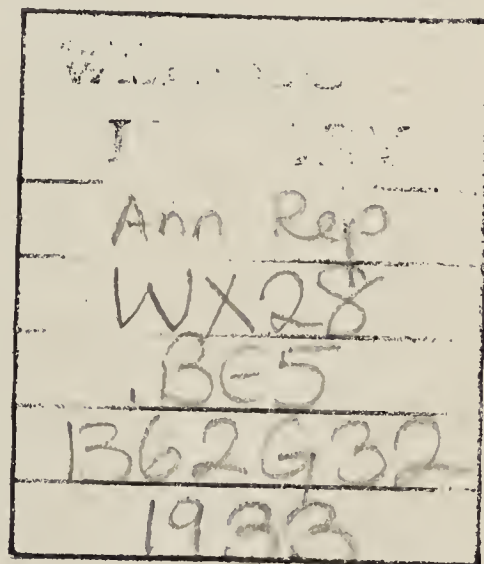 Ann Rep
WX28
.BE5
B62G32
1933